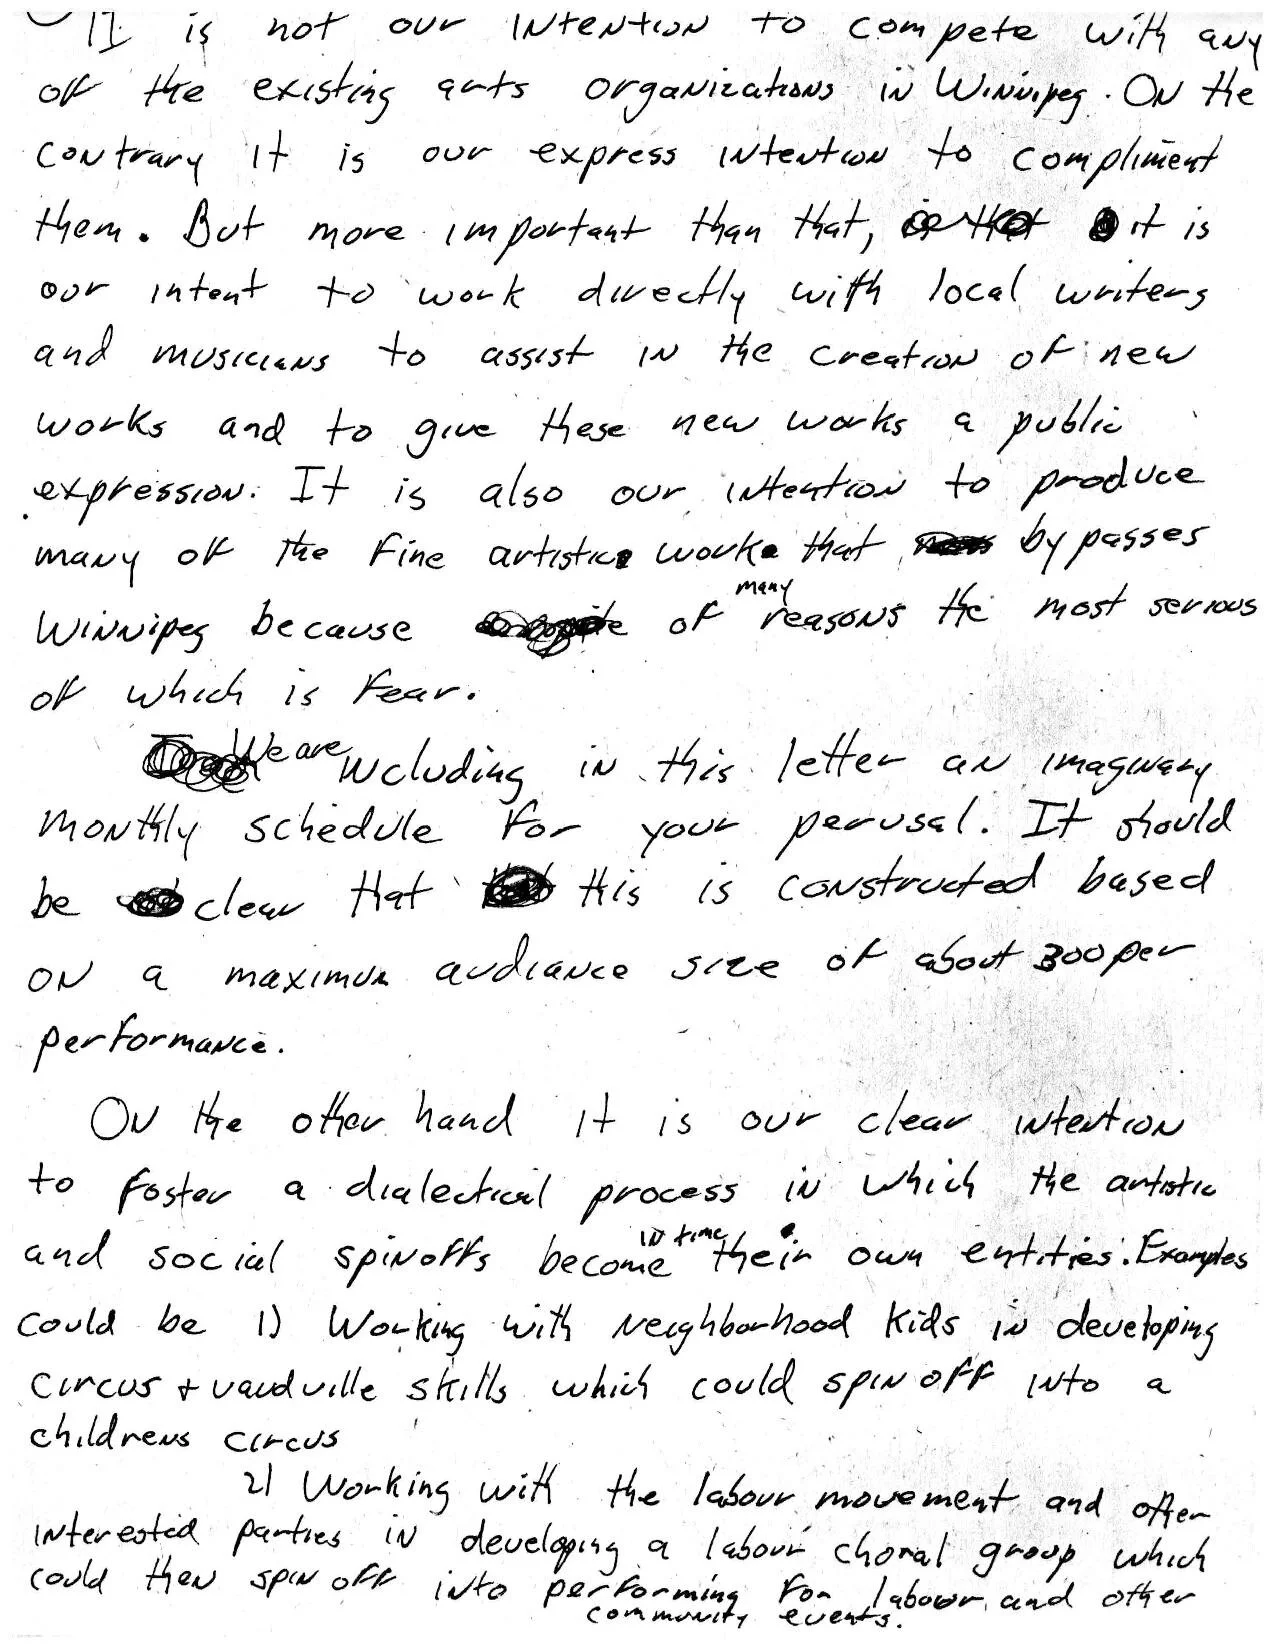 It is not our intention to compete with any
of the existing arts organizations in Winnipeg. On the
contrary it is our express intention to compliment
them. But more important than that, it is
our intent to work directly with local writers
and musicians to assist in the creation of new
works and to give these new works a public
expression. It is also our intention to produce
many of the fine artistic work that bypasses
many
Winnipeg because of reasons the most serious
of which is fear.
We are including in this letter an imaginary
monthly schedule for your perusal. It should
be clear that this is constructed based
on a maximum audiance size of about 300 per
performance.
On the other hand it is our clear intention
to foster a dialectical process in which the artistic
in time
and social spinoffs become their own entities. Examples
could be 1) Working with neighborhood kids in developing
circus + vaudville skills which could spin off into a
childrens circus
2) Working with the labour movement and other
interested parties in developing a labour choral group which
could then spin off into performing for labour and other
community events.